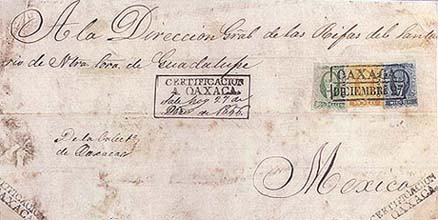 A la Direccion Gral. de las Rifas del Santua
rio de Ntra. Sora. de Guadalupe
CERTIFICACION
A OAXACA.
Sale hoy 27 de
Dbre de 1856.
OAXACA
DICIEMBRE 27
De la Colect.ª
de Oaxaca
Mexico
CERTIFICACION
A OAXACA
CERTIFICACION
A OAXACA